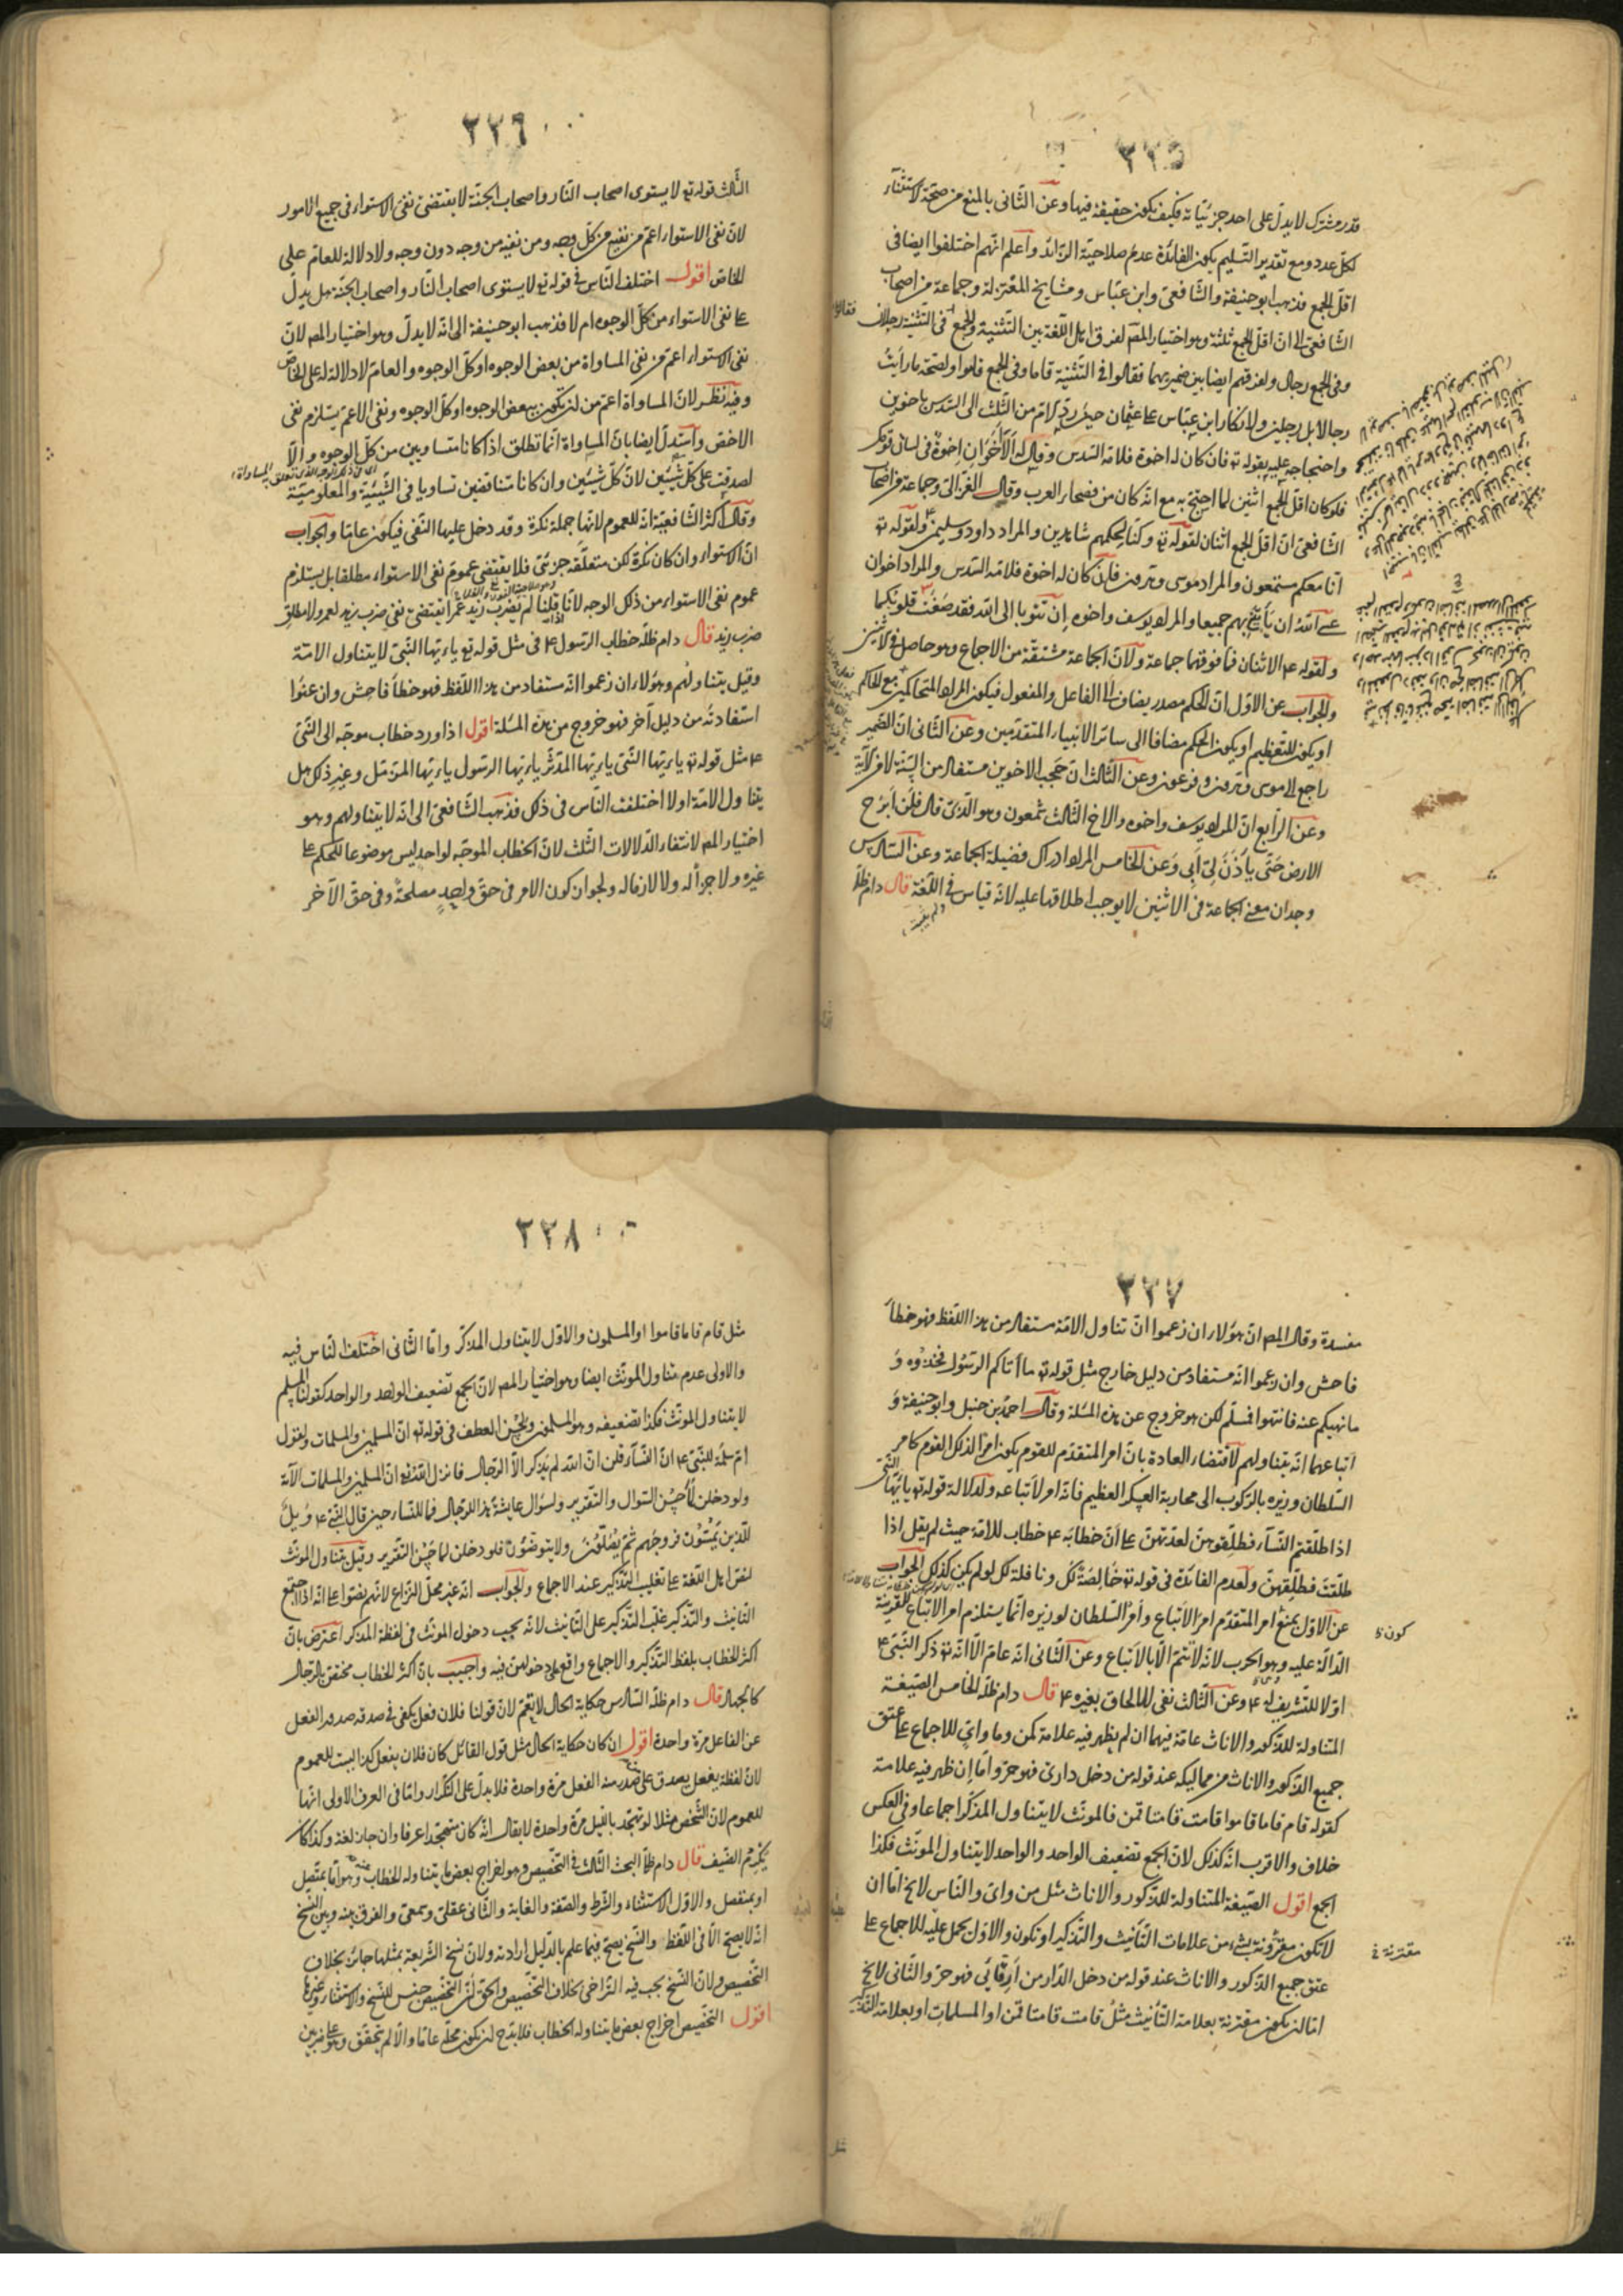 ٢٢٥
قدر مشترك لا يدل على احد جزئياته فكيف يكون حقيقة فيها وعن الثانى بالمنع من صحة الاستثناء
لكل عدد ومع تقدير التسليم يكون الفائدة عدم صلاحية الزائد واعلم انهم اختلفوا ايضا فى
اقل الجمع فذهب ابو حنيفة والشافعى وابن عباس ومشايخ المعتزلة وجماعة من اصحاب
الشافعى الى ان اقل الجمع ثلثة وهو اختيار المص لفرق اهل اللغة بين التثنية والجمع فى التثنية رجلان
وفى الجمع رجال ولفرقهم ايضا بين ضميريهما فقالوا فى التثنية قاما وفى الجمع قاموا ولصحة ما رايت
رجالا بل رجلين ولانكار ابن عباس على عثمان حين رد الام من الثلث الى السدس باخوين
واحتجاجه عليه بقوله تع فان كان له اخوة فلامه السدس وقال له الاخوان اخوة فى لسان قومك
فلو كان اقل الجمع اثنين لما احتج به مع انه كان من فصحاء العرب وقال الغزالى وجماعة من اصحاب
الشافعى ان اقل الجمع اثنان لقوله تع وكنا لحكمهم شاهدين والمراد داود وسليمن ولقوله تع
انا معكم مستمعون والمراد موسى وهرون فان كان له اخوة فلامه السدس والمراد اخوان
عسى الله ان يأتينى بهم جميعا والمراد يوسف واخوه ان تتوبا الى الله فقد صغت قلوبكما
ولقوله ع الاثنان فما فوقهما جماعة ولان الجماعة مشتقة من الاجماع وهو حاصل فى الاثنين
والجواب عن الاول ان الحكم مصدر يضاف الى الفاعل والمفعول فيكون المراد المتحاكمين مع الحاكم
او يكون للتعظيم او يكون الحكم مضافا الى سائر الانبياء المتقدمين وعن الثانى ان الضمير
راجع الى موسى وهرون وفرعون وعن الثالث ان حجب الاخوين مستفاد من السنة لا من الآية
وعن الرابع ان المراد يوسف واخوه والاخ الثالث شمعون وهو الذى قال فلن ابرح
الارض حتى يأذن لى ابى وعن الخامس المراد ادراك فضيلة الجماعة وعن السادس
وجدان معنى الجماعة فى الاثنين لا يوجب اطلاقها عليه لانه قياس فى اللغة قال دام ظله
٢٢٦
الثالث قوله تع لا يستوى اصحاب النار واصحاب الجنة لا يقتضى نفى الاستواء فى جميع الامور
لان نفى الاستواء اعم من نفيه من كل وجه ومن نفيه من وجه دون وجه ولا دلالة للعام على
الخاص اقول اختلف الناس فى قوله تع لا يستوى اصحاب النار واصحاب الجنة هل يدل
على نفى الاستواء من كل الوجوه ام لا فذهب ابو حنيفة الى انه لا يدل وهو اختيار المص لان
نفى الاستواء اعم من نفى المساواة من بعض الوجوه او كل الوجوه والعام لا دلالة له على الخاص
وفيه نظر لان المساواة اعم من ان يكون ببعض الوجوه او كل الوجوه ونفى الاعم يستلزم نفى
الاخص واستدل ايضا بان المساواة انما تطلق اذا كانا متساويين من كل الوجوه والا
لصدقت على كل شيئين لان كل شيئين وان كانا متناقضين تساويا فى الشيئية والمعلومية
وقال اكثر الشافعية انه للعموم لانها جملة نكرة وقد دخل عليها النفى فيكون عاما والجواب
ان الاستواء وان كان نكرة لكن متعلقه جزئى فلا يقتضى عموم نفى الاستواء مطلقا بل يستلزم
عموم نفى الاستواء من ذلك الوجه لانا اذا قلنا لم يضرب زيد عمرا يقتضى نفى ضرب زيد لعمرو لا مطلق
ضرب زيد قال دام ظله خطاب الرسول ع فى مثل قوله تع يا ايها النبى لا يتناول الامة
وقيل يتناولهم وهؤلاء ان زعموا انه مستفاد من هذا اللفظ فهو خطأ فاحش وان عنوا
استفادته من دليل آخر فهو خروج من هذه المسئلة اقول اذا ورد خطاب موجه الى النبى
ع مثل قوله تع يا ايها النبى يا ايها المدثر يا ايها الرسول يا ايها المزمل وغير ذلك هل
يتناول الامة او لا اختلفت الناس فى ذلك فذهب الشافعى الى انه لا يتناولهم وهو
اختيار المص لانتفاء الدلالات الثلث لان الخطاب الموجه لواحد ليس موضوعا للحكم على
غيره ولا جزأ له ولا لازما له ولجواز كون الامر فى حق واحد مصلحة وفى حق الآخر
٢٢٧
مفسدة وقال المص ان هؤلاء ان زعموا ان تناول الامة مستفاد من هذا اللفظ فهو خطأ
فاحش وان زعموا انه مستفاد من دليل خارج مثل قوله تع ما آتاكم الرسول فخذوه و
ما نهيكم عنه فانتهوا فمسلم لكن هو خروج عن هذه المسئلة وقال احمد بن حنبل وابو حنيفة و
اتباعهما انه يتناولهم لاقتضاء العادة بان امر المتقدم للقوم يكون امرا لذلك القوم كامر
السلطان وزيره بالركوب الى محاربة العسكر العظيم فانه امر لاتباعه ولدلالة قوله تع يا ايها النبى
اذا طلقتم النساء فطلقوهن لعدتهن على ان خطابه ع خطاب للامة حيث لم يقل اذا
طلقت فطلقهن ولعدم الفائدة فى قوله تع خالصة لك ونافلة لك لو لم يكن كذلك الجواب
عن الاول بمنع امر المتقدم امر الاتباع وامر السلطان لوزيره انما يستلزم امر الاتباع للقرينة
الدالة عليه وهو الحرب لانه لا تتم الا بالاتباع وعن الثانى انه عام الا انه تع ذكر النبى ع
اولا للتشريف له ع وعن الثالث نفى الالحاق بغيره ع قال دام ظله الخامس الصيغة
المتناولة للذكور والاناث عامة فيهما ان لم يظهر فيه علامة كمن وما واى للاجماع على عتق
جميع الذكور والاناث من مماليكه عند قوله من دخل دارى فهو حر واما ان ظهر فيه علامة
كقوله قام قاما قاموا قامت قامتا قمن فالمونث لا يتناول المذكر اجماعا وفى العكس
خلاف والاقرب انه كذلك لان الجمع تضعيف الواحد والواحد لا يتناول المونث فكذا
الجمع اقول الصيغة المتناولة للذكور والاناث مثل من واى والناس لا يخ اما ان
لا تكون مقرونة بشىء من علامات التأنيث والتذكير او تكون والاول يحمل عليه للاجماع على
عتق جميع الذكور والاناث عند قوله من دخل الدار من ارقائى فهو حر والثانى لا يخ
اما ان يكون مقترنة بعلامة التأنيث مثل قامت قامتا قمن او المسلمات او بعلامة التذكير
٢٢٨
مثل قام قاما قاموا او المسلمون والاول لا يتناول المذكر واما الثانى اختلف الناس فيه
والاولى عدم تناول المونث ايضا وهو اختيار المص لان الجمع تضعيف الواحد والواحد كقولنا المسلم
لا يتناول المونث فكذا تضعيفه وهو المسلمون ولحسن العطف فى قوله تع ان المسلمين والمسلمات ولقول
ام سلمة للنبى ع ان النساء قلن ان الله لم يذكر الا الرجال فانزل الله تع ان المسلمين والمسلمات الآية
ولو دخلن لما حسن السوال والتقرير ولسؤال عايشة هذا للرجال فما للنساء حين قال النبى ع ويل
للذين يمسون فروجهم ثم يصلون ولا يتوضئون فلو دخلن لما حسن التقرير وقيل يتناول المونث
لنص اهل اللغة على تغليب التذكير عند الاجماع والجواب انه غير محل النزاع لانهم نصوا على انه اذا اجتمع
التأنيث والتذكير غلب التذكير على التأنيث لا انه يجب دخول المونث فى لفظة المذكر اعترض بان
اكثر الخطاب بلفظ التذكير والاجماع واقع على دخولهن فيه واجيب بان اكثر الخطاب مختص بالرجال
كالجهاد قال دام ظله السادس حكاية الحال لا تعم لان قولنا فلان فعل يكفى فى صدقه صدور الفعل
عن الفاعل مرة واحدة اقول ان كان حكاية الحال مثل قول القائل كان فلان يفعل كذا ليست للعموم
لان لفظة يفعل يصدق على صدور منه الفعل مرة واحدة فلا يدل على التكرار واما فى العرف الاولى انها
للعموم لان الشخص مثلا لو تهجد بالليل مرة واحدة لا يقال انه كان يتهجد عرفا وان جاز لغة وكذا كان
يكرم الضيف قال دام ظله البحث الثالث فى التخصيص وهو اخراج بعض ما يتناوله الخطاب وهو اما بمتصل
او بمنفصل والاول الاستثناء والشرط والصفة والغاية والثانى عقلى وسمعى والفرق بينه وبين النسخ
انه لا يصح الا فى اللفظ والنسخ يصح فيما علم بالدليل ارادته ولان نسخ الشريعة بمثلها جائز بخلاف
التخصيص ولان النسخ يجب فيه التراخى بخلاف التخصيص والحق ان التخصيص جنس للنسخ والاستثناء وغيرها
اقول التخصيص اخراج بعض ما يتناوله الخطاب فلا بد ان يكون محله عاما والا لم يتحقق وهو على ضربين